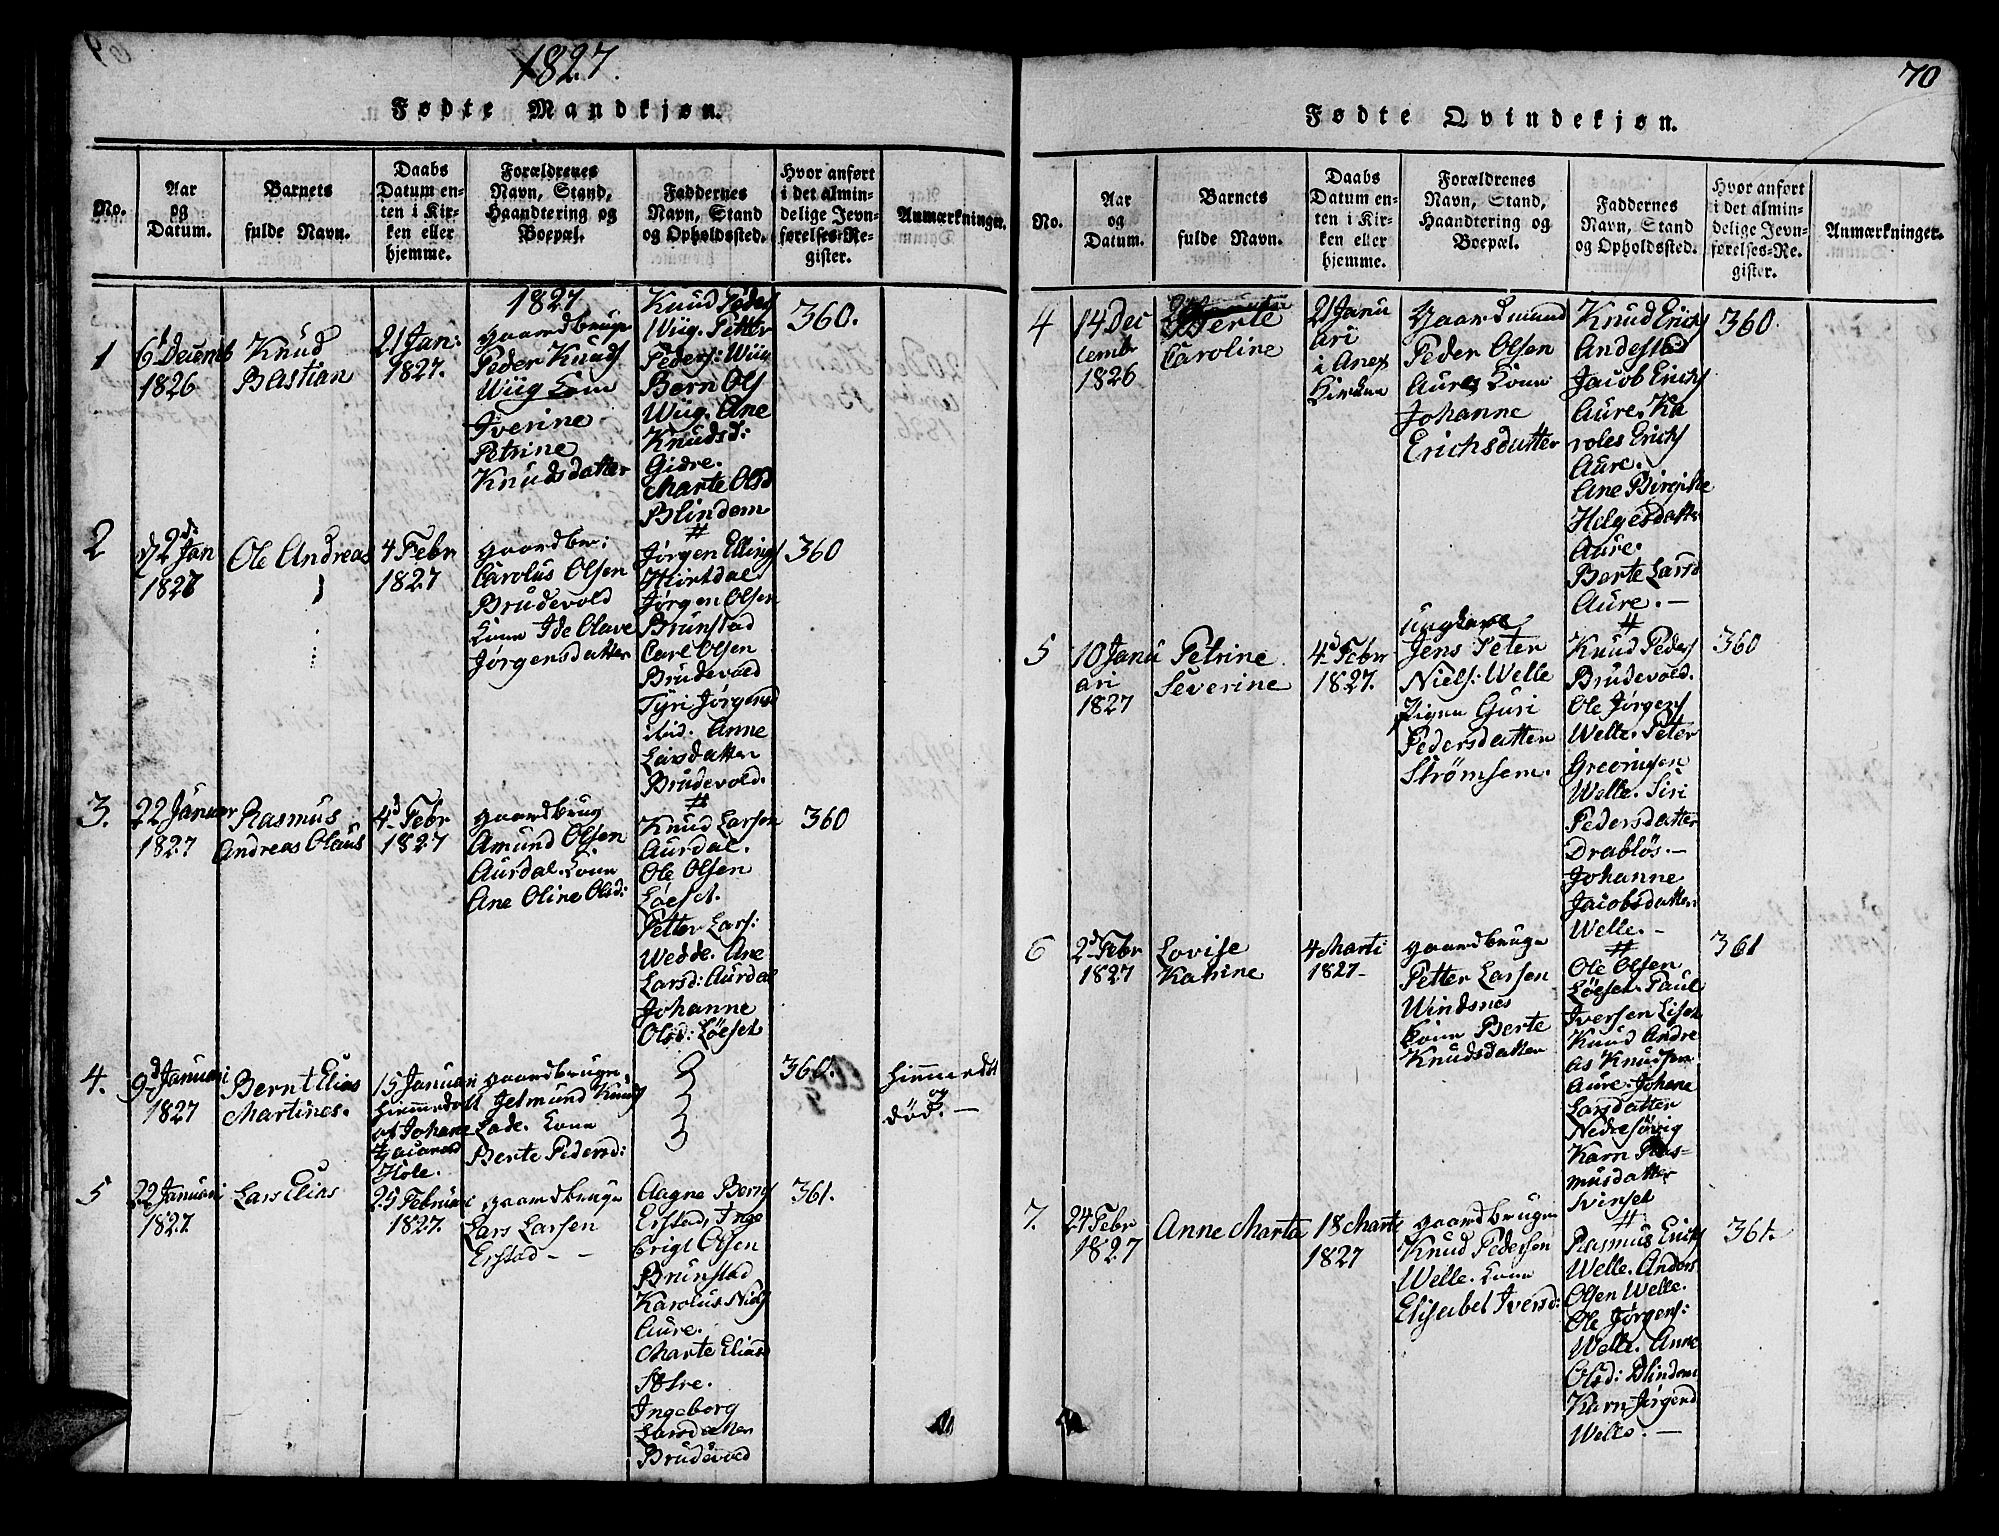 1827.
Fødte Mandkjøn.
No.
Aar
og
Datum.
Barnets
fulde Navn.
Daabs
Datum en-
ten i Kir-
ken eller
hjemme.
Forældrenes
Navn, Stand,
Haandtering og
Boepæl.
Faddernes
Navn, Stand
og Opholdssted.
Hvor anført
i det almin-
delige Jevn-
førelses-Re-
gister.
Anmærkninger.
1827
1
6 Decemb
1826
Knud
Bastian
21 Jan:
1827.
gaardbruger
Peder Knuds
Wiig Kone
Iverine
Petrine
Knudsdatter
Knud Peders
Wiig. Petter
Peders: Wiig
Bern Ols
Wiig. Ane
Knudsd:
Giære.
Marte Olsd
Blindem
360.
2
d 2 Jan
1827
Ole Andreas
4 Febr
1827
gaardbr:
Carolus Olsen
Brudevold
Kone Ide Olave
Jørgensdatter
#
Jørgen Ellings
Hiortdal
Jørgen Olsen
Brunstad
Carl Olsen
Brudevold
Tyri Jørgensd
ibid. Anne
Larsdatter
Brudevold.
360
3.
22 Januar
1827
Rasmus
Andreas Olaus
4 Febr
1827
gaardbrug
Amund Olsen
Aurdal. Kone
Ane Oline Olsd:
#
Knud Larsen
Aurdal.
Ole Olsen
Løeset.
Petter Lars:
Wedde. Ane
Larsd: Aurdal
Johanne
Olsd: Løeset
360
4.
9 Januari
1827
Bernt Elias
Martines.
15 Januari
hiemmedøbt
af Johane
Hole.
gaardbruger
Jetmund Knuds
Lade. Kone
Berte Pedersd:
360.
hiemmedøbt
død. —
5
22 Januari
1827.
Lars Elias
25 Februari
1827.
gaardbruger
Lars Larsen
Erstad — —
Aagne Berns
Erstad, Inge
brigt Olsen
Brunstad
Karolus Niels
Aure.
Marte Eliasd
Ingeborg
Larsdatter
Brudevold
361.
70
Fødte Qvindekjøn.
No.
Aar
og
Datum.
Barnets
fulde Navn.
Daabs
Datum en-
ten i Kir-
ken eller
hjemme.
Forældrenes
Navn, Stand,
Haandtering og
Boepæl.
Faddernes
Navn, Stand
og Opholdssted.
Hvor anført
i det almin-
delige Jevn-
førelses-Re-
gister.
Anmærkninger.
4
14 Dec
embr
1826
Berte
Caroline
21 Janu
ari
i Anex
Kirken
Gaardmand
Peder Olsen
Aure. Kone
Johanne
Erichsdatter
Knud Erichs
Andestad
Jacob Erichs
Aure. Ka
roles Erichs
Aure.
Ane Birgithe
Helgesdatter
Aure.
Berte Larsd
Aure. —
360.
5
10 Janu
ari
1827
Petrine
Severine
4 Febr
1827.
ungkarl
Jens Peter
Niels: Welle
Pigen Guri
Pedersdatter
Strømsem.
#
Knud Peders
Brudevold.
Ole Jørgens
Welle. Peter
Welle. Siri
Pedersdatter
Drabløs. —
Johanne
Jacobsdatter
Welle. —
360
6
2 Febr
1827
Lovise
Katrine
4 Marti
1827 —
gaardbruger
Petter Larsen
Windsnes
Kone Berte
Knudsdatter
#
Ole Olsen
Løeset. Paul
Iversen Liset
Knud Andre
as Knudsen
Aure. Johane
Larsdatter
Nedresøvig
Karn Ras-
musdatter
Svinset
361
7.
24 Febr
1827
Anne Marta
18 Marti
1827
gaardbruger
Knud Pedersen
Welle. Kone
Elisabet Iversd:
#
Rasmus Erichs
Welle. Anders
Olsen Welle.
Ole Jørgens:
Welle. Anne
Olsd: Blindem
Karn Jørgend
Welle. —
361.